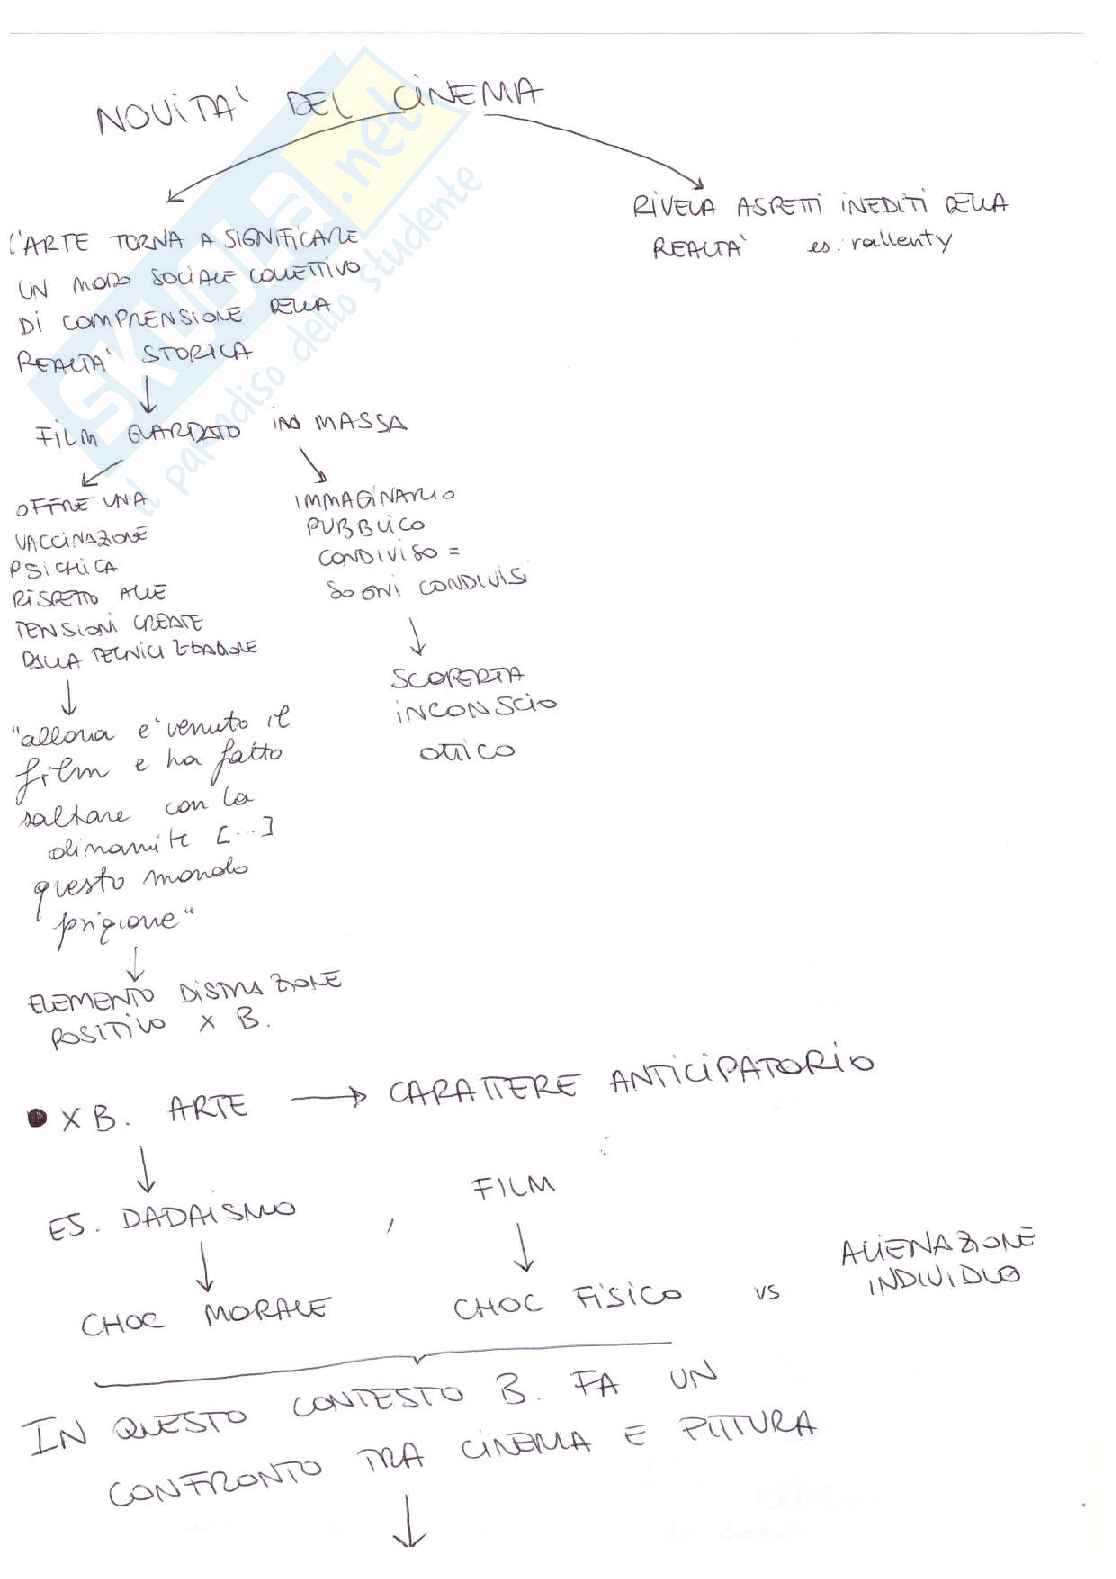 NOVITA' DEL CINEMA
L'ARTE TORNA A SIGNIFICARE
UN MODO SOCIALE COLLETTIVO
DI COMPRENSIONE DELLA
REALTA' STORICA
RIVELA ASPETTI INEDITI DELLA
REALTA' es. rallenty
FILM GUARDATO IN MASSA
OFFRE UNA
VACCINAZIONE
PSICHICA
RISPETTO ALLE
TENSIONI CREATE
DALLA TECNICIZZAZIONE
IMMAGINARIO
PUBBLICO
CONDIVISO =
SOGNI CONDIVISI
SCOPERTA
INCONSCIO
OTTICO
"allora e' venuto il
film e ha fatto
saltare con la
dinamite [...]
questo mondo
prigione"
ELEMENTO DISTRAZIONE
POSITIVO X B.
● X B. ARTE → CARATTERE ANTICIPATORIO
ES. DADAISMO , FILM
CHOC MORALE CHOC FISICO vs ALIENAZIONE
INDIVIDUO
IN QUESTO CONTESTO B. FA UN
CONFRONTO TRA CINEMA E PITTURA
SKUOLA.net
il paradiso dello studente